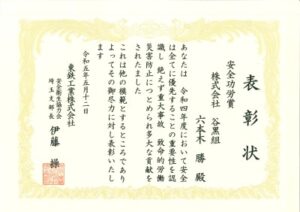 表彰状
安全功労賞
株式会社 谷黒組
六本木 勝 殿
あなたは 令和四年度において安全
は全てに優先することの重要性を認
識し 絶えず重大事故 致命的労働
災害防止につとめられ多大な貢献を
されました
これは他の模範とするところであり
よってその御尽力に対し表彰いたし
ます
令和五年五月十二日
東鉄工業株式会社
安全衛生協力会
埼玉支部長 伊藤 操